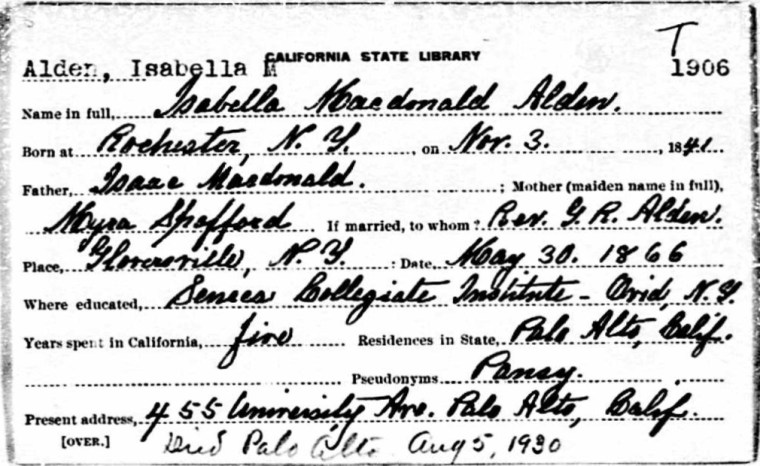 T
CALIFORNIA STATE LIBRARY
Alden, Isabella M 1906
Name in full, Isabella Macdonald Alden.
Born at Rochester, N. Y. , on Nov. 3. , 1841
Father, Isaac Macdonald. ; Mother (maiden name in full),
Myra Spafford If married, to whom? Rev. G. R. Alden.
Place, Gloversville, N. Y. : Date May 30. 1866
Where educated, Seneca Collegiate Institute - Ovid, N. Y.
Years spent in California, five Residences in State, Palo Alto, Calif.
Pseudonyms Pansy.
Present address, 455 University Ave. Palo Alto, Calif.
[OVER.] Died Palo Alto Aug 5, 1930